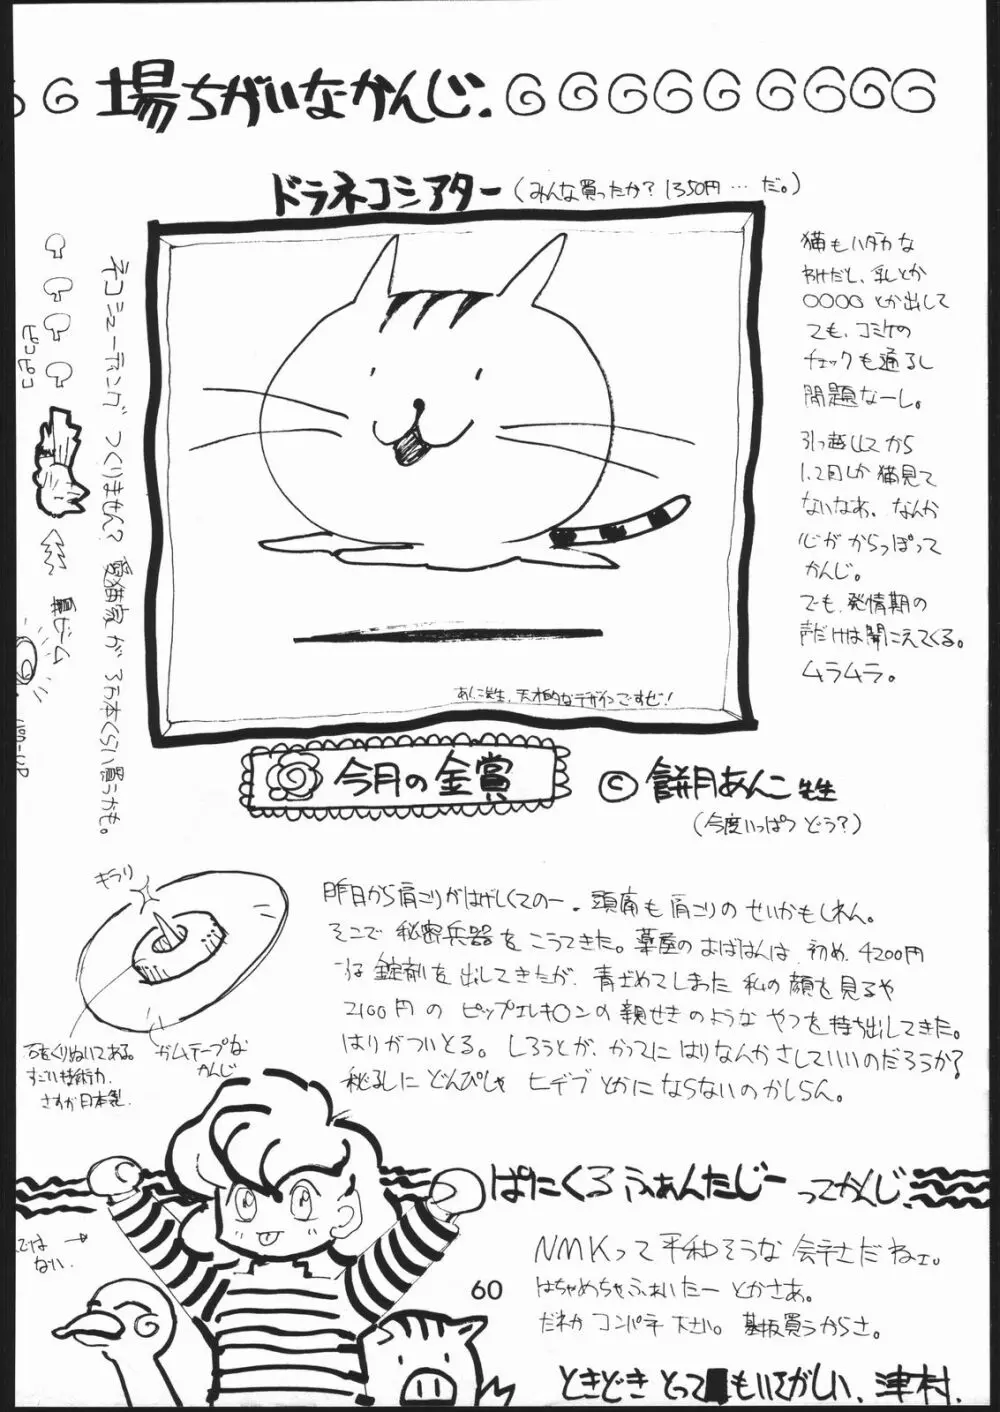 場ちがいなかんじ.
ドラネコシアター(みんな買ったか? 1350円…だ。)
猫もハダカな
わけだし、乳とか
○○○○とか出して
ても、コミケの
チェックも通るし
問題なーし。
引っ越ししてから
猫見て
ないなあ、なんか
心がからっぽって
かんじ。
でも、発情期の
声だけは聞こえてくる。
ムラムラ。
ネコシューティング つくりません? 愛猫家が
くらい買うかも。
ピコピコ
ビーム
1UP
あんこ先生、天才的なデザインですぜ!
今月の金賞
© 餅月あんこ先生
(今度いっぱつどう?)
キラリ
石をくりぬいてある。
すごい技術力、
さすが日本製.
ガムテープな
かんじ
昨日から肩こりがはげしくてのー。頭痛も肩こりのせいかもしれん。
そこで秘密兵器をこうてきた。薬屋のおばはんは、初め、4200円
な錠剤を出してきたが、青ざめてしまった私の顔を見るや
2100円のピップエレキ○ンの親せきのようなやつを持ち出してきた。
はりがついとる。しろうとが、かってにはりなんかさしていいのだろうか?
秘孔にどんぴしゃ ヒデブとかにならないのかしらん。
ぱにくるふぁんたじーってかんじ.
ではない.
NMKって平和そうな会社だねェ。
はちゃめちゃふぁいたーとかさあ。
だれかコンパチ下さい。基板買うからさ。
60
ときどきとってもいてかしい、津村.